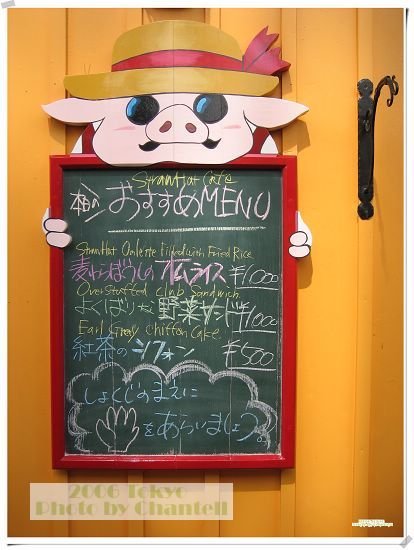 StrawHat Cafe
本日の おすすめMENU
StrawHat Omlette Filled with Fried Rice
麦わらぼうしのオムライス ¥1000
Over Stuffed Club Sandwich
よくばりな野菜サンド ¥1000
Earl Grey Chiffon Cake
紅茶のシフォン ¥500
しょくじのまえに
をあらいましょう。
2006 Tokyo
Photo by Chantell